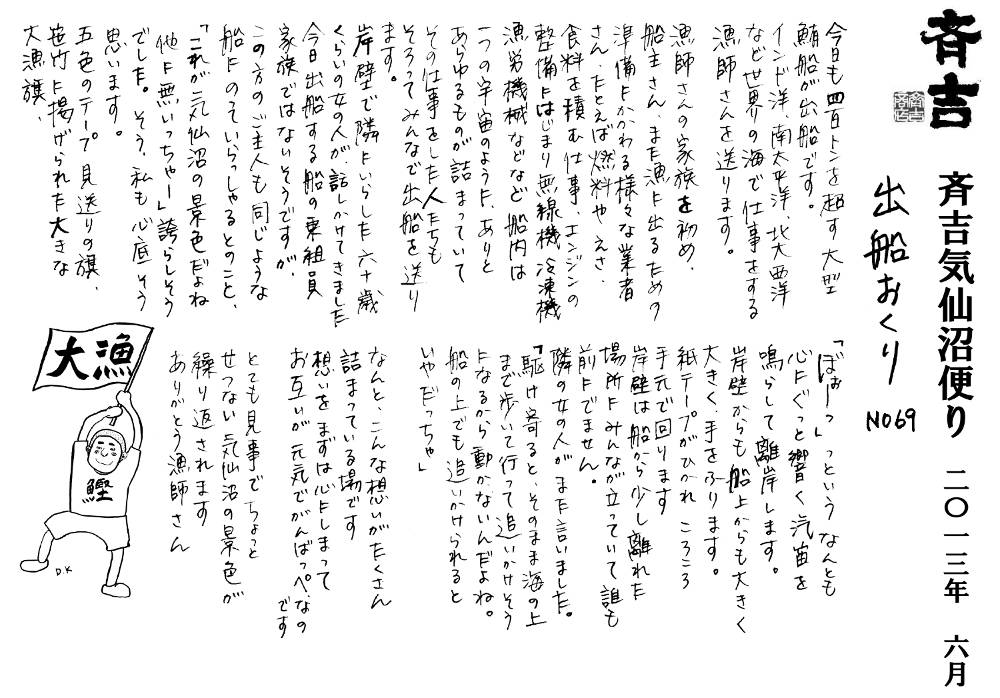 斉吉
斉吉気仙沼便り 二〇一三年 六月
出船おくり No69
今日も四百トンを超す大型
鮪船が出船です。
インド洋、南太平洋、北大西洋
など世界の海で仕事をする
漁師さんを送ります。
漁師さんの家族を初め、
船主さん、また漁に出るための
準備にかかわる様々な業者
さん、たとえば燃料や、えさ、
食料を積む仕事、エンジンの
整備にはじまり無線機、冷凍機
漁労機械などなど船内は
一つの宇宙のような、ありと
あらゆるものが詰まっていて
その仕事をした人たちも
そろってみんなで出船を送り
ます。
岸壁で隣にいらした六十歳
くらいの女の人が、話しかけてきました
今日出船する船の乗組員
家族ではないそうですが、
この方のご主人も同じような
船にのっていらっしゃるとのこと、
「これが気仙沼の景色だよね
他に無いっちゃー」誇らしそう
でした。そう、私も心底そう
思います。
五色のテープで見送りの旗、
笹竹に揚げられた大きな
大漁旗、
「ぼぉーっ」っという なんとも
心にぐっと響く汽笛を
鳴らして離岸します。
岸壁からも船上からも大きく
大きく、手をふります。
紙テープがひかれ ころころ
手元で回ります
岸壁は船から少し離れた
場所にみんなが立っていて誰も
前にでません。
隣の女の人が、また言いました。
「駆け寄ると、そのまま海の上
まで歩いて行って追いかけそう
になるから動かないんだよね。
船の上でも追いかけられると
いやだっちゃ」
なんと、こんな想いがたくさん
詰まっている場です
想いをまずは心にしまって
お互いが元気でがんばっぺ、なの
です
とても見事でちょっと
せつない気仙沼の景色が
繰り返されます
ありがとう漁師さん
大漁
鰹
D.K